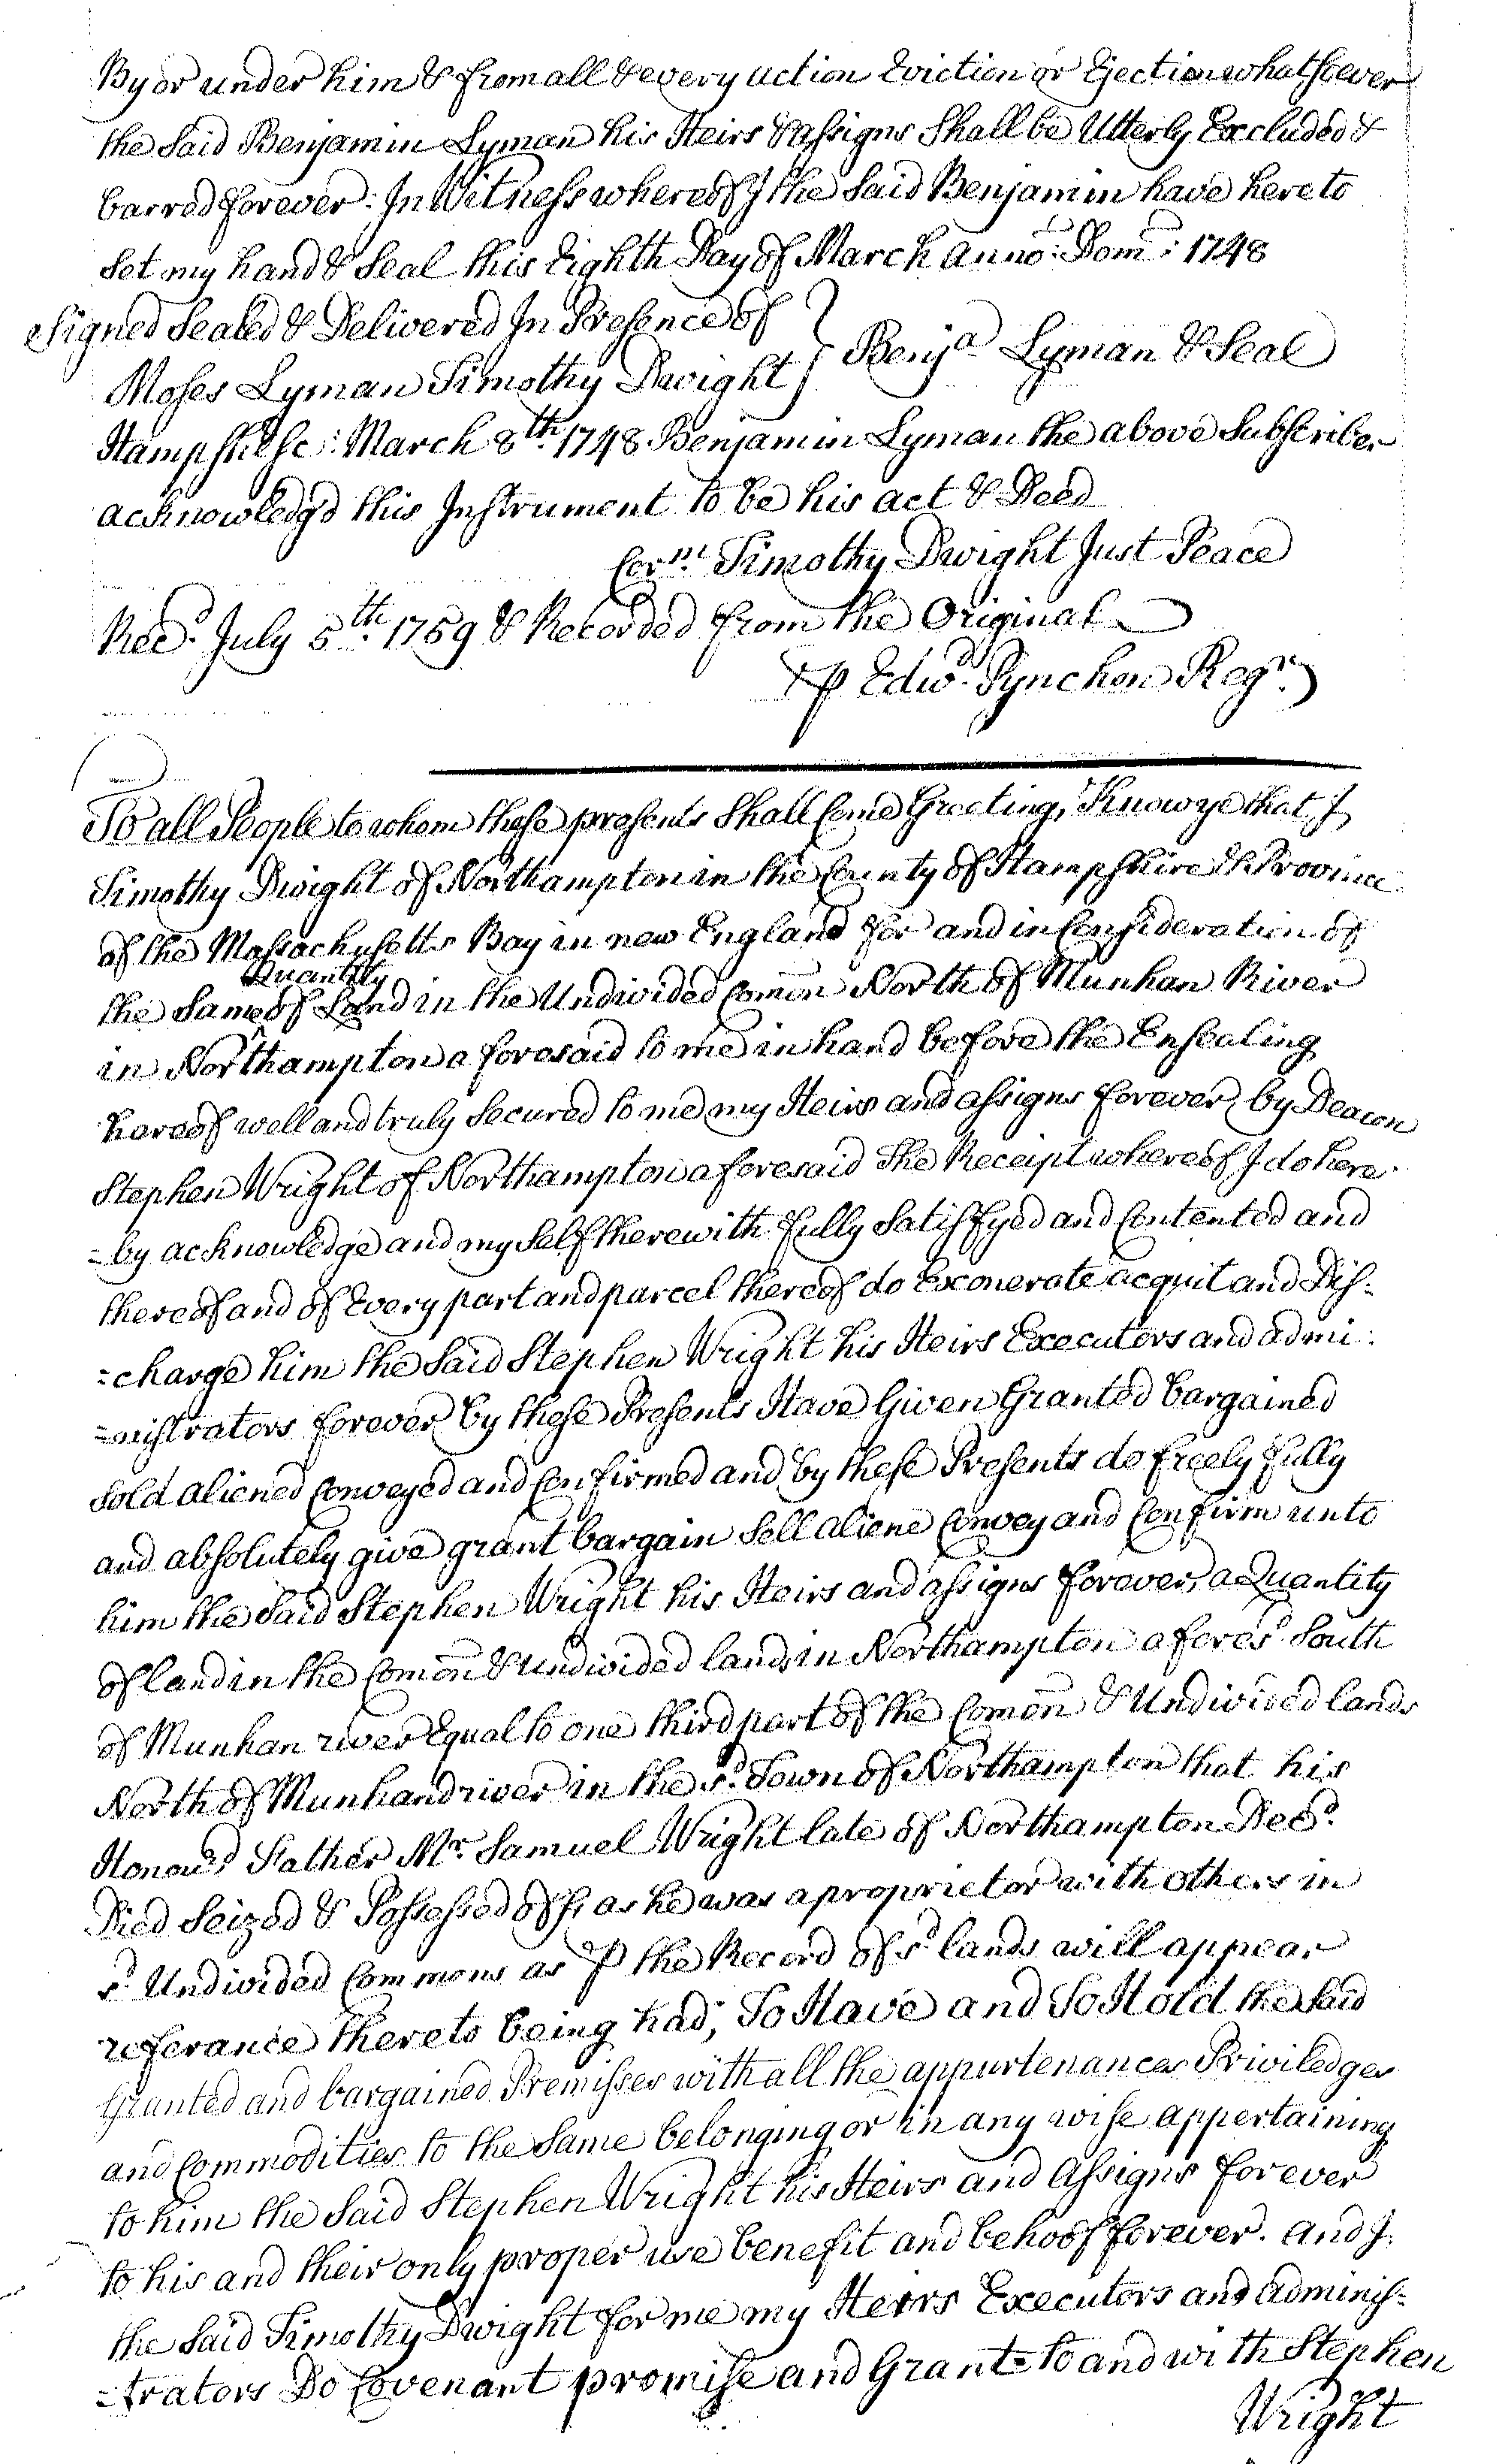 By or under him & from all & every action Eviction or Ejection whatsoever
the said Benjamin Lyman his Heirs & assigns Shall be Utterly Excluded &
barred forever: In Witness whereof I the said Benjamin have hereto
set my hand & Seal this Eighth Day of March anno: Dom: 1748
Signed Sealed & Delivered In Presence of
Moses Lyman Timothy Dwight } Benja Lyman & Seal
Hampshr Sc: March 8th 1748 Benjamin Lyman the above Subscriber
acknowledg'd this Instrument to be his act & Deed
Corm Timothy Dwight Just Peace
Recd July 5th 1759 & Recorded from the Original
℘ Edwd Pynchon Regr
To all People to whom these presents Shall Come Greeting, Know ye that I
Timothy Dwight of Northampton in the County of Hampshire & Province
of the Massachusetts Bay in new England for and in Consideration of
the Same Quantity of Land in the Undivided Comon North of Munhan River
in Northampton aforesaid to me in hand before the Ensealing
hereof well and truly Secured to me my Heirs and assigns forever, by Deacon
Stephen Wright of Northampton aforesaid The Receipt whereof I do here
=by acknowledge and my Self therewith fully Satisfyed and Contented and
thereof and of Every part and parcel thereof do Exonerate acquit and Dis=
=charge him the Said Stephen Wright his Heirs Executors and admi:
=nistrators forever by these Presents Have Given Granted bargained
Sold aliened Conveyed and Confirmed and by these Presents do freely fully
and absolutely give grant bargain Sell aliene Convey and Confirm unto
him the Said Stephen Wright his Heirs and assigns forever, a Quantity
of land in the Comon & Undivided lands in Northampton aforesd South
of Munhan river Equal to one third part of the Comon & Undivided lands
North of Munhand river in the sd Town of Northampton that his
Honourd Father Mr. Samuel Wright late of Northampton Decd
Died Seized & Possessed of, as he was a proprietor with others in
sd Undivided Commons as ℘ the Record of sd lands will appear
referance thereto being had; To Have and To Hold the Said
Granted and bargained Premisses with all the appurtenances Priviledges
and Commodities to the Same belonging or in any wise appertaining
to him the Said Stephen Wright his Heirs and Assigns forever
to his and their only proper use benefit and behoof forever. and I
the Said Timothy Dwight for me my Heirs Executors and adminis=
=trators Do Covenant promise and Grant to and with Stephen
Wright